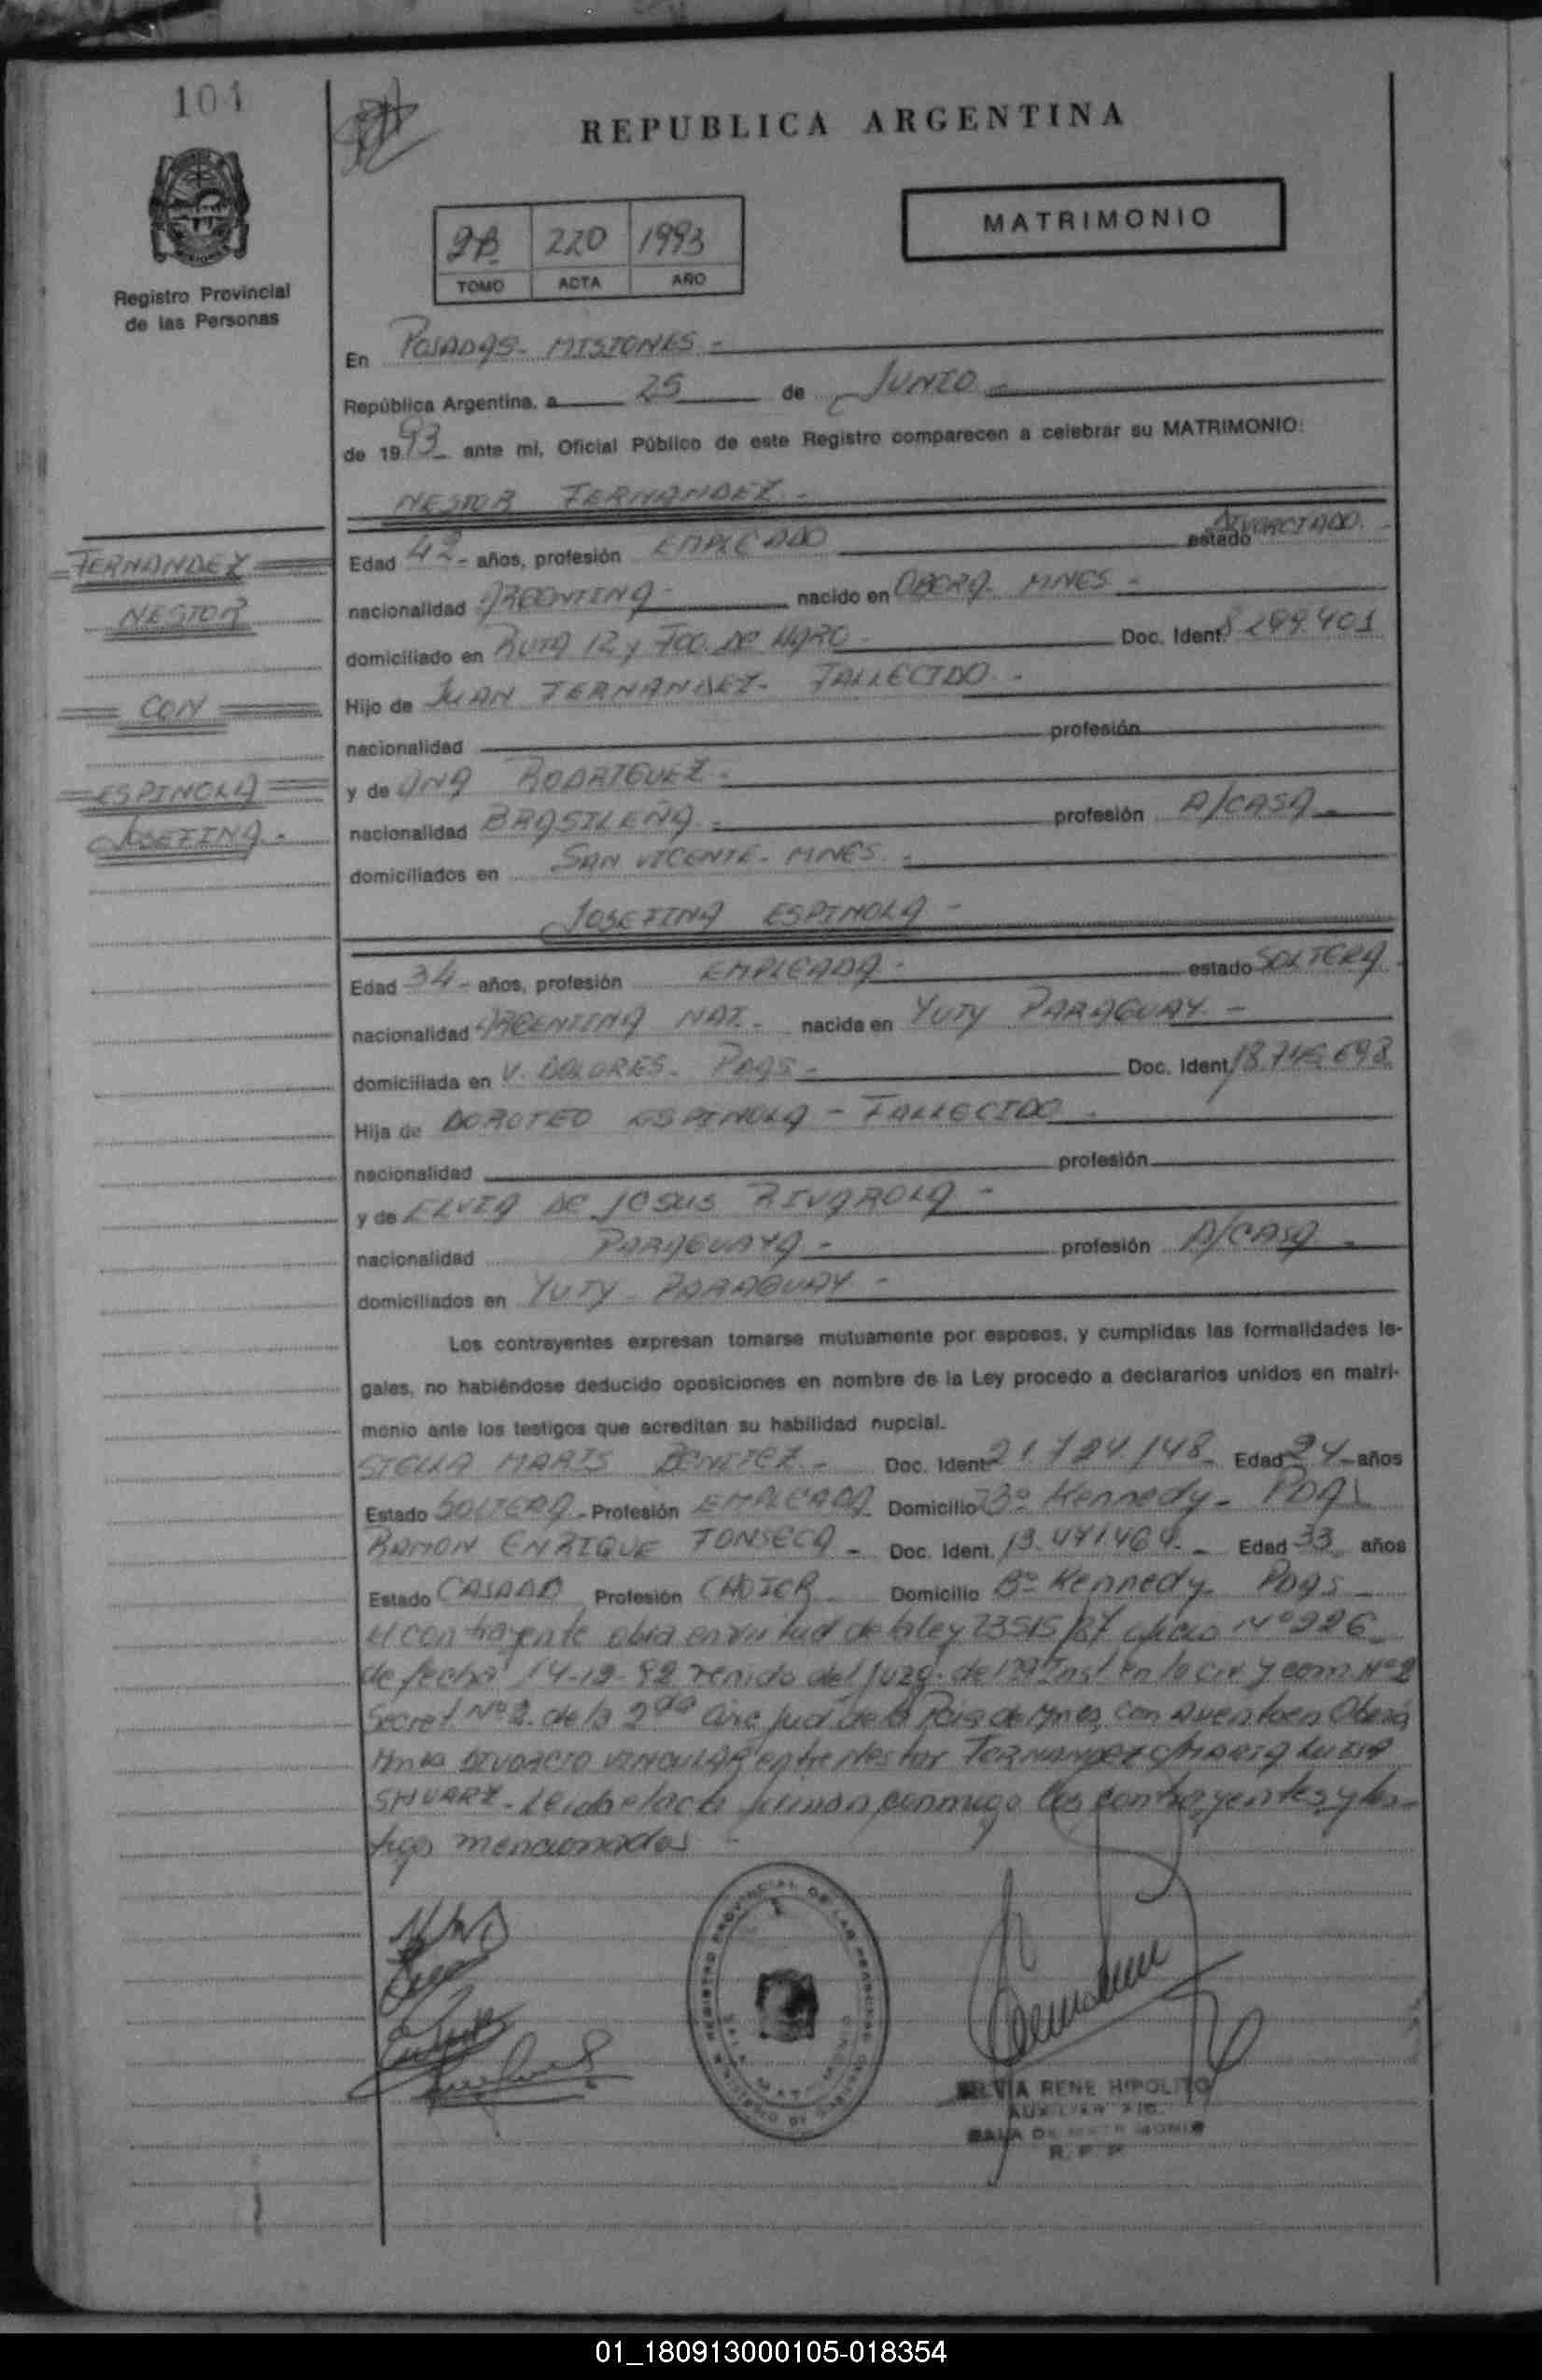 104
REPUBLICA ARGENTINA
MATRIMONIO
2B 220 1993
TOMO ACTA AÑO
Registro Provincial
de las Personas
En POSADAS- MISIONES -
República Argentina, a 25 de JUNIO
de 1993 ante mi, Oficial Público de este Registro comparecen a celebrar su MATRIMONIO:
NESTOR FERNANDEZ -
FERNANDEZ
NESTOR
CON
ESPINOLA
JOSEFINA -
Edad 42 - años, profesión EMPLEADO estado DIVORCIADO -
nacionalidad ARGENTINA nacido en OBERA MNES -
domiciliado en RUTA 12 y FCO. DE HARO Doc. Ident 8 299.401
Hijo de JUAN FERNANDEZ- FALLECIDO -
nacionalidad profesión
y de ANA RODRIGUEZ -
nacionalidad BRASILEÑA - profesión A/CASA -
domiciliados en SAN VICENTE - MNES -
JOSEFINA ESPINOLA -
Edad 34 - años, profesión EMPLEADA - estado SOLTERA -
nacionalidad ARGENTINA NAT - nacida en YUTY PARAGUAY -
domiciliada en V. DOLORES - PDAS - Doc. Ident. 18.746.693
Hija de DOROTEO ESPINOLA - FALLECIDO -
nacionalidad profesión
y de ELVIA DE JESUS RIVAROLA -
nacionalidad PARAGUAYA - profesión A/CASA -
domiciliados en YUTY - PARAGUAY -
Los contrayentes expresan tomarse mutuamente por esposos, y cumplidas las formalidades le-
gales, no habiéndose deducido oposiciones en nombre de la Ley procedo a declararlos unidos en matri-
monio ante los testigos que acreditan su habilidad nupcial.
STELLA MARIS BENITEZ - Doc. Ident 21.724.148 - Edad 24 - años
Estado SOLTERA - Profesión EMPLEADA Domicilio Bº Kennedy - PDAS
RAMON ENRIQUE FONSECA - Doc. Ident. 13.471.464 - Edad 33 años
Estado CASADO Profesión CHOFER Domicilio Bº Kennedy - PDAS
el contrayente obra en virtud de la ley 23515/87 oficio Nº 226
de fecha 14-12-92 venido del Juzg. de 1ª Inst. en lo Civ y com. Nº 2
Secret Nº 2. de la 2da Circ Jud de la Pcia de Mnes, con asiento en Oberá
Mnes DIVORCIO VINCULAR entre Nestor FERNANDEZ c/MARIA LUISA
SHUARZ - Leida el acta firman conmigo los contrayentes y tes-
tigos mencionados -
REGISTRO PROVINCIAL DE LAS PERSONAS
SILVIA RENE HIPOLITO
SALA DE MATRIMONIO
R. P. P.
01_180913000105-018354